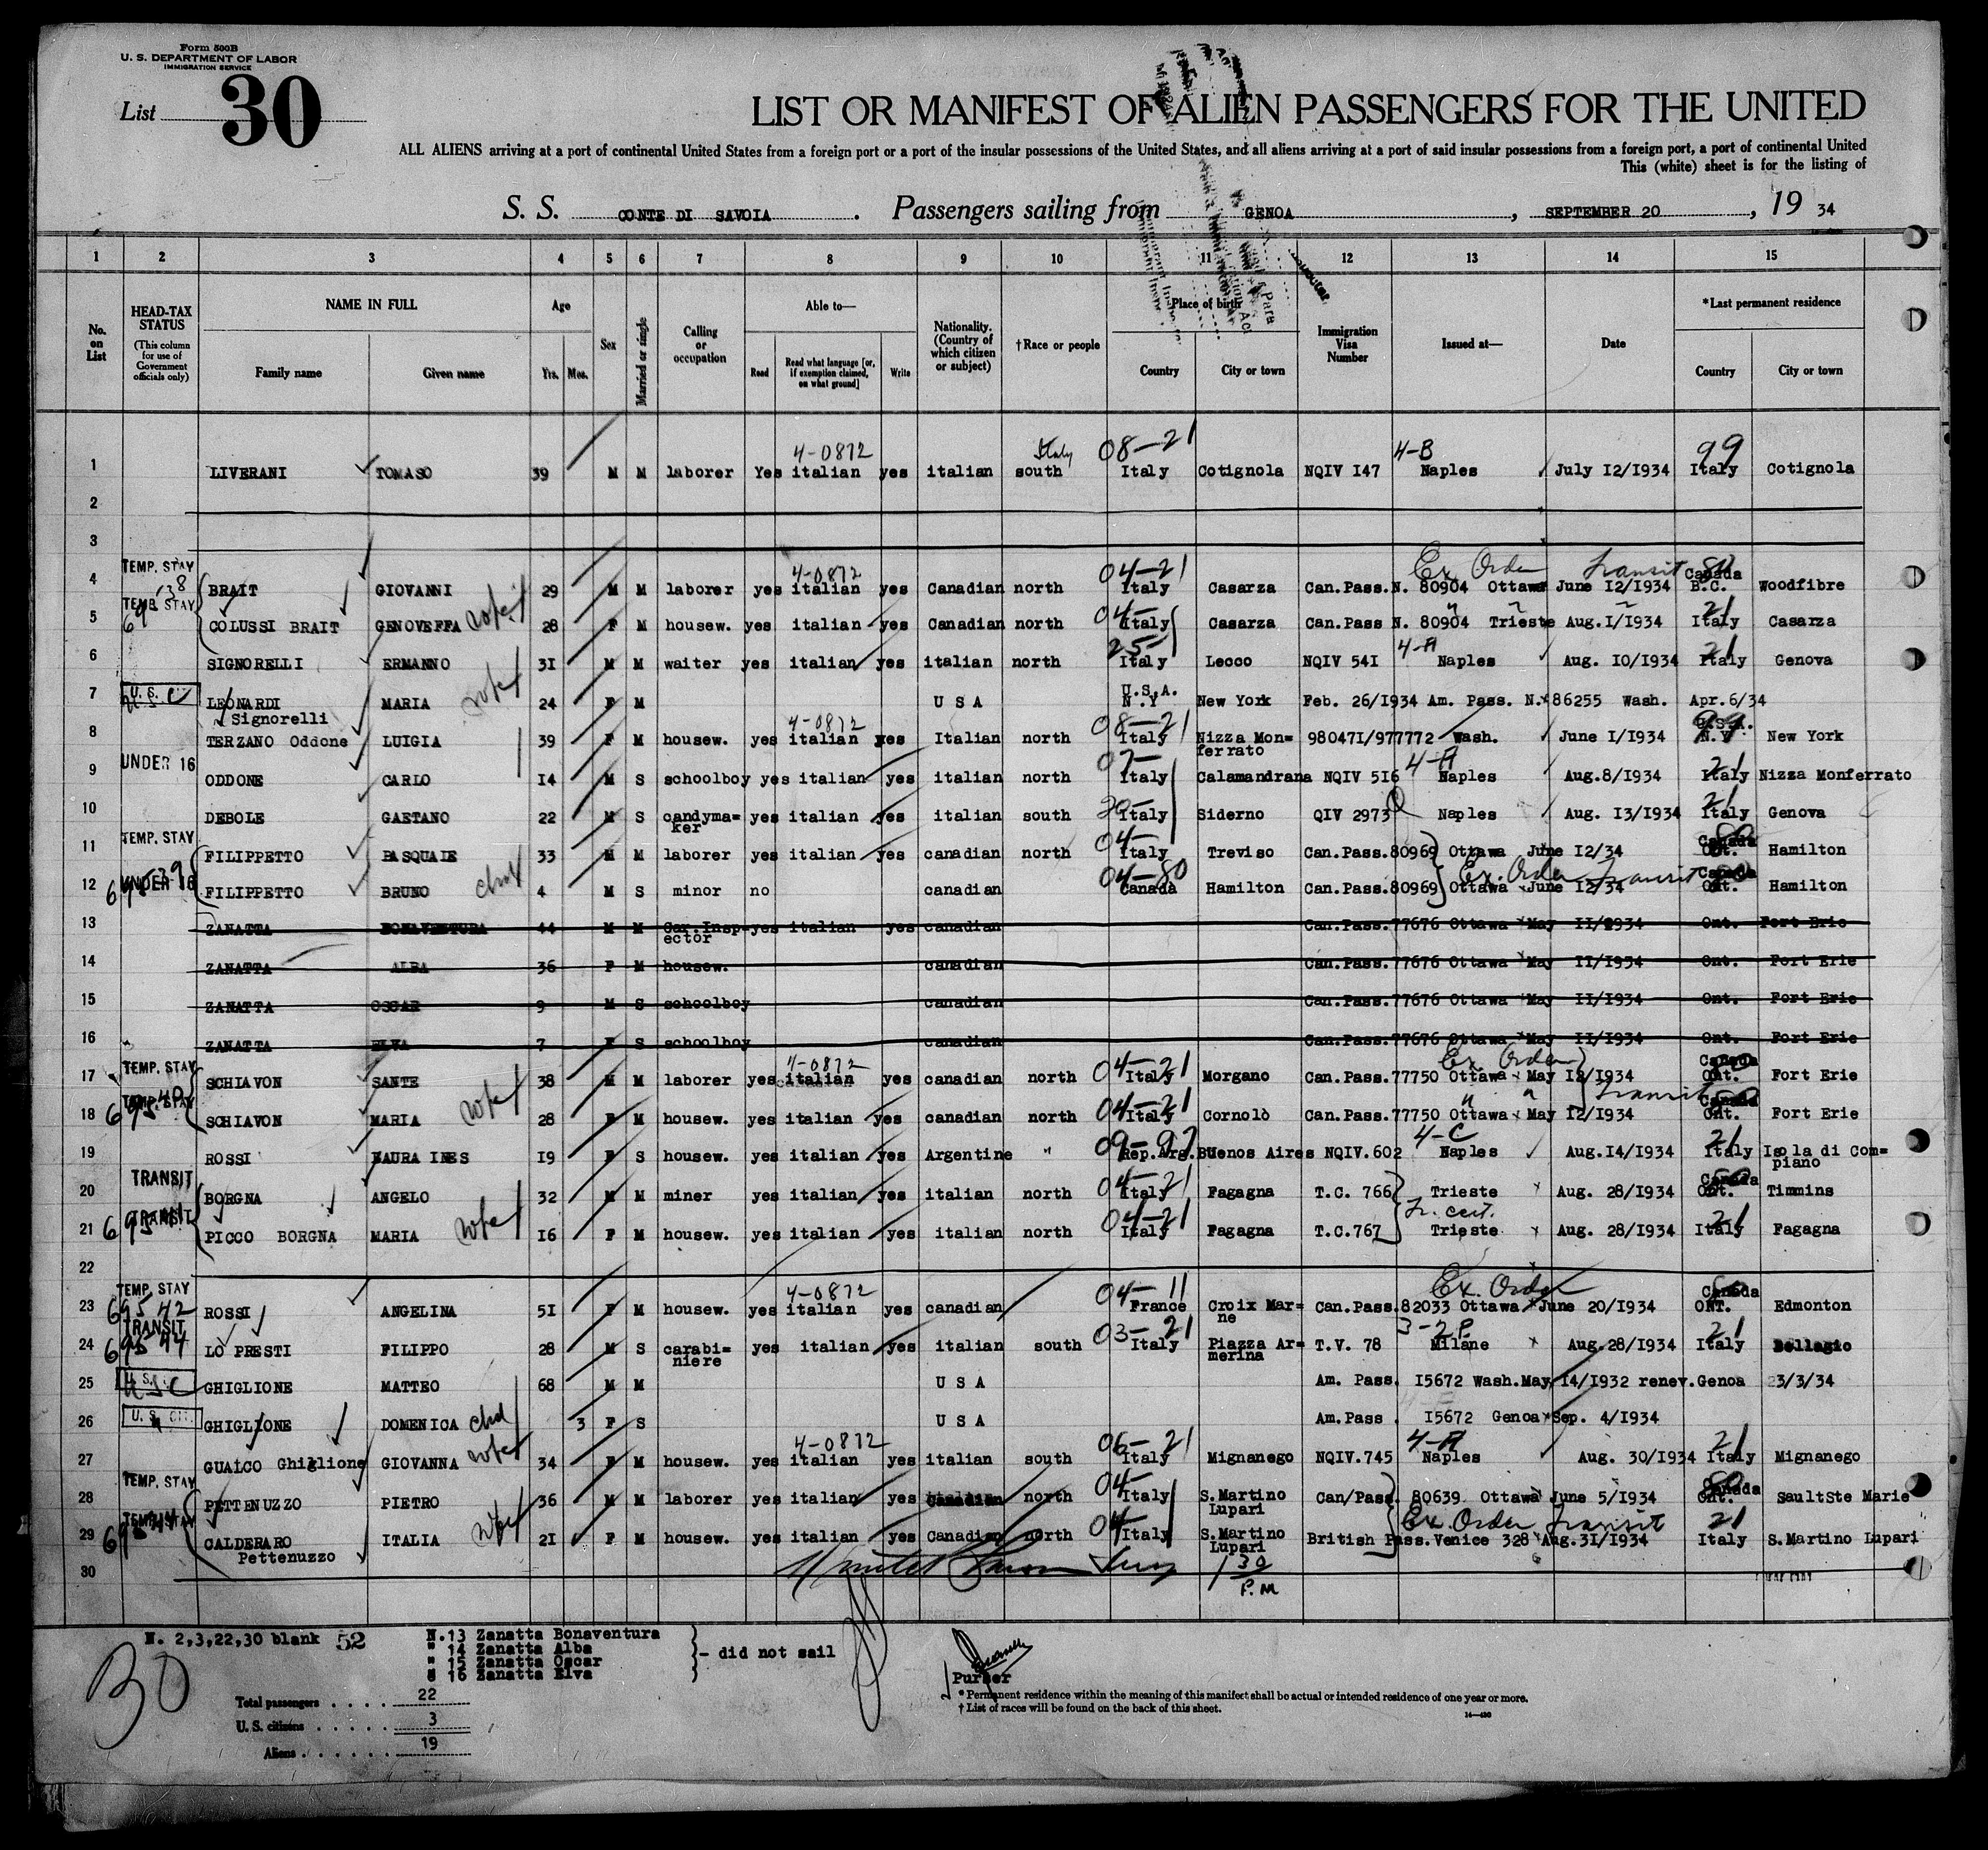 Form 500B
U. S. DEPARTMENT OF LABOR
IMMIGRATION SERVICE
List 30
LIST OR MANIFEST OF ALIEN PASSENGERS FOR THE UNITED
ALL ALIENS arriving at a port of continental United States from a foreign port or a port of the insular possessions of the United States, and all aliens arriving at a port of said insular possessions from a foreign port, a port of continental United
This (white) sheet is for the listing of
S. S. CONTE DI SAVOIA. Passengers sailing from GENOA, SEPTEMBER 20, 19 34
1 2 3 4 5 6 7 8 9 10 11 12 13 14 15
No. on List
HEAD-TAX STATUS (This column for use of Government officials only)
NAME IN FULL
Family name Given name
Age
Yrs. Mos.
Sex
Married or single
Calling or occupation
Able to—
Read Read what language [or, if exemption claimed, on what ground] Write
Nationality. (Country of which citizen or subject)
†Race or people
Place of birth
Country City or town
Immigration Visa Number
Issued at—
Date
*Last permanent residence
Country City or town
4-0872 Italy 08-21 4-B 99
1 LIVERANI TOMASO 39 M M laborer Yes italian yes italian south Italy Cotignola NQIV I47 Naples July I2/I934 Italy Cotignola
2
3
TEMP. STAY 4-0872 04-21 Ex. Order Transit
4 BRAIT GIOVANNI 29 M M laborer yes italian yes Canadian north Italy Casarza Can.Pass.N. 80904 Ottawa June I2/I934 Canada B.C. Woodfibre
TEMP. STAY
5 COLUSSI BRAIT GENOVEFFA wife 28 F M housew. yes italian yes Canadian north 04- Italy Casarza Can.Pass N. 80904 Trieste Aug.I/I934 21 Italy Casarza
6 SIGNORELLI ERMANNO 3I M M waiter yes italian yes italian north 25- Italy Lecco NQIV 54I 4-A Naples Aug. I0/I934 21 Italy Genova
7 U.S.C LEONARDI Signorelli MARIA wife 24 F M U S A U.S.A. N.Y New York Feb. 26/I934 Am. Pass. N. 86255 Wash. Apr.6/34
8 TERZANO Oddone LUIGIA 39 F M housew. yes 4-0872 italian yes Italian north 08-21 Italy Nizza Mon=ferrato 98047I/977772 Wash. June I/I934 U.S.A. N.Y New York
UNDER 16
9 ODDONE CARLO I4 M S schoolboy yes italian yes italian north 07- Italy Calamandrana NQIV 5I6 4-A Naples Aug.8/I934 21 Italy Nizza Monferrato
10 DEBOLE GAETANO 22 M S candyma=ker yes italian yes italian south 30- Italy Siderno QIV 2973 Naples Aug. I3/I934 21 Italy Genova
TEMP. STAY
11 FILIPPETTO PASQUALE 33 M M laborer yes italian yes canadian north 04- Italy Treviso Can.Pass.80969 Ottawa June I2/34 Canada Ont. Hamilton
UNDER 16
12 FILIPPETTO BRUNO chd 4 M S minor no canadian 04-80 Canada Hamilton Can.Pass.80969 Ottawa June I2/34 Ex. Order Transit Canada Ont. Hamilton
13 ZANATTA BONAVENTURA 44 M M Car.Insp=ector yes italian yes canadian Can.Pass.77676 Ottawa May II/I934 Ont. Fort Erie
14 ZANATTA ALBA 36 F M housew. canadian Can.Pass.77676 Ottawa May II/I934 Ont. Fort Erie
15 ZANATTA OSCAR 9 M S schoolboy canadian Can.Pass.77676 Ottawa May II/I934 Ont. Fort Erie
16 ZANATTA ELVA 7 F S schoolboy canadian Can.Pass.77676 Ottawa May II/I934 Ont. Fort Erie
TEMP. STAY 4-0872 04-21 Ex. Order
17 SCHIAVON SANTE 38 M M laborer yes italian yes canadian north Italy Morgano Can.Pass.77750 Ottawa May I2/I934 Canada Ont. Fort Erie
TEMP. STAY Transit
18 SCHIAVON MARIA wife 28 F M housew. yes italian yes canadian north 04-21 Italy Cornolò Can.Pass.77750 Ottawa May I2/I934 Canada Ont. Fort Erie
19 ROSSI NAURA INES I9 F S housew. yes italian yes Argentine " 09-97 Rep.Arg. Buenos Aires NQIV.602 4-C Naples Aug.I4/I934 21 Italy Isola di Com=piano
TRANSIT
20 BORGNA ANGELO 32 M M miner yes italian yes italian north 04-21 Italy Fagagna T.C. 766 Trieste Aug. 28/I934 Canada Ont. Timmins
TRANSIT Tr. cert.
21 PICCO BORGNA MARIA wife I6 F M housew. yes italian yes italian north 04-21 Italy Fagagna T.C.767 Trieste Aug. 28/I934 21 Italy Fagagna
22
TEMP. STAY 4-0872 04-11 Ex. Order
23 69542 ROSSI ANGELINA 5I F M housew. yes italian yes canadian France Croix Mar=ne Can.Pass.82033 Ottawa June 20/I934 Canada ONT. Edmonton
TRANSIT
24 LO PRESTI FILIPPO 28 M S carabi=niere yes italian yes italian south 03-21 Italy Piazza Ar=merina T.V. 78 3-2P. Milane Aug.28/I934 21 Italy Bellagio
25 GHIGLIONE MATTEO 68 M M U S A Am. Pass. I5672 Wash.May I4/I932 renev.Genoa 23/3/34
26 GHIGLIONE DOMENICA chd 3 F S U S A Am.Pass. I5672 Genoa Sep. 4/I934
27 GUALCO Ghiglione GIOVANNA wife 34 F M housew. yes 4-0872 italian yes italian south 06-21 Italy Mignanego NQIV.745 4-A Naples Aug. 30/I934 21 Italy Mignanego
TEMP. STAY
28 PETTENUZZO PIETRO 36 M M laborer yes italian yes Canadian north 04- Italy S.Martino Lupari Can/Pass. 80639 Ottawa June 5/I934 Canada Ont. SaultSte Marie
TEMP. STAY Ex. Order Transit
29 CALDERARO Pettenuzzo ITALIA wife 2I F M housew. yes italian yes Canadian north 04- Italy S.Martino Lupari British Pass.Venice 328 Aug.3I/I934 21 Italy S.Martino Lupari
30 1 30 P.M
N. 2,3,22,30 blank 52
N.13 Zanatta Bonaventura
" 14 Zanatta Alba
" 15 Zanatta Oscar
" 16 Zanatta Elva
- did not sail
30
Total passengers 22
U. S. citizens 3
Aliens 19
Purser
*Permanent residence within the meaning of this manifest shall be actual or intended residence of one year or more.
†List of races will be found on the back of this sheet.
14—430